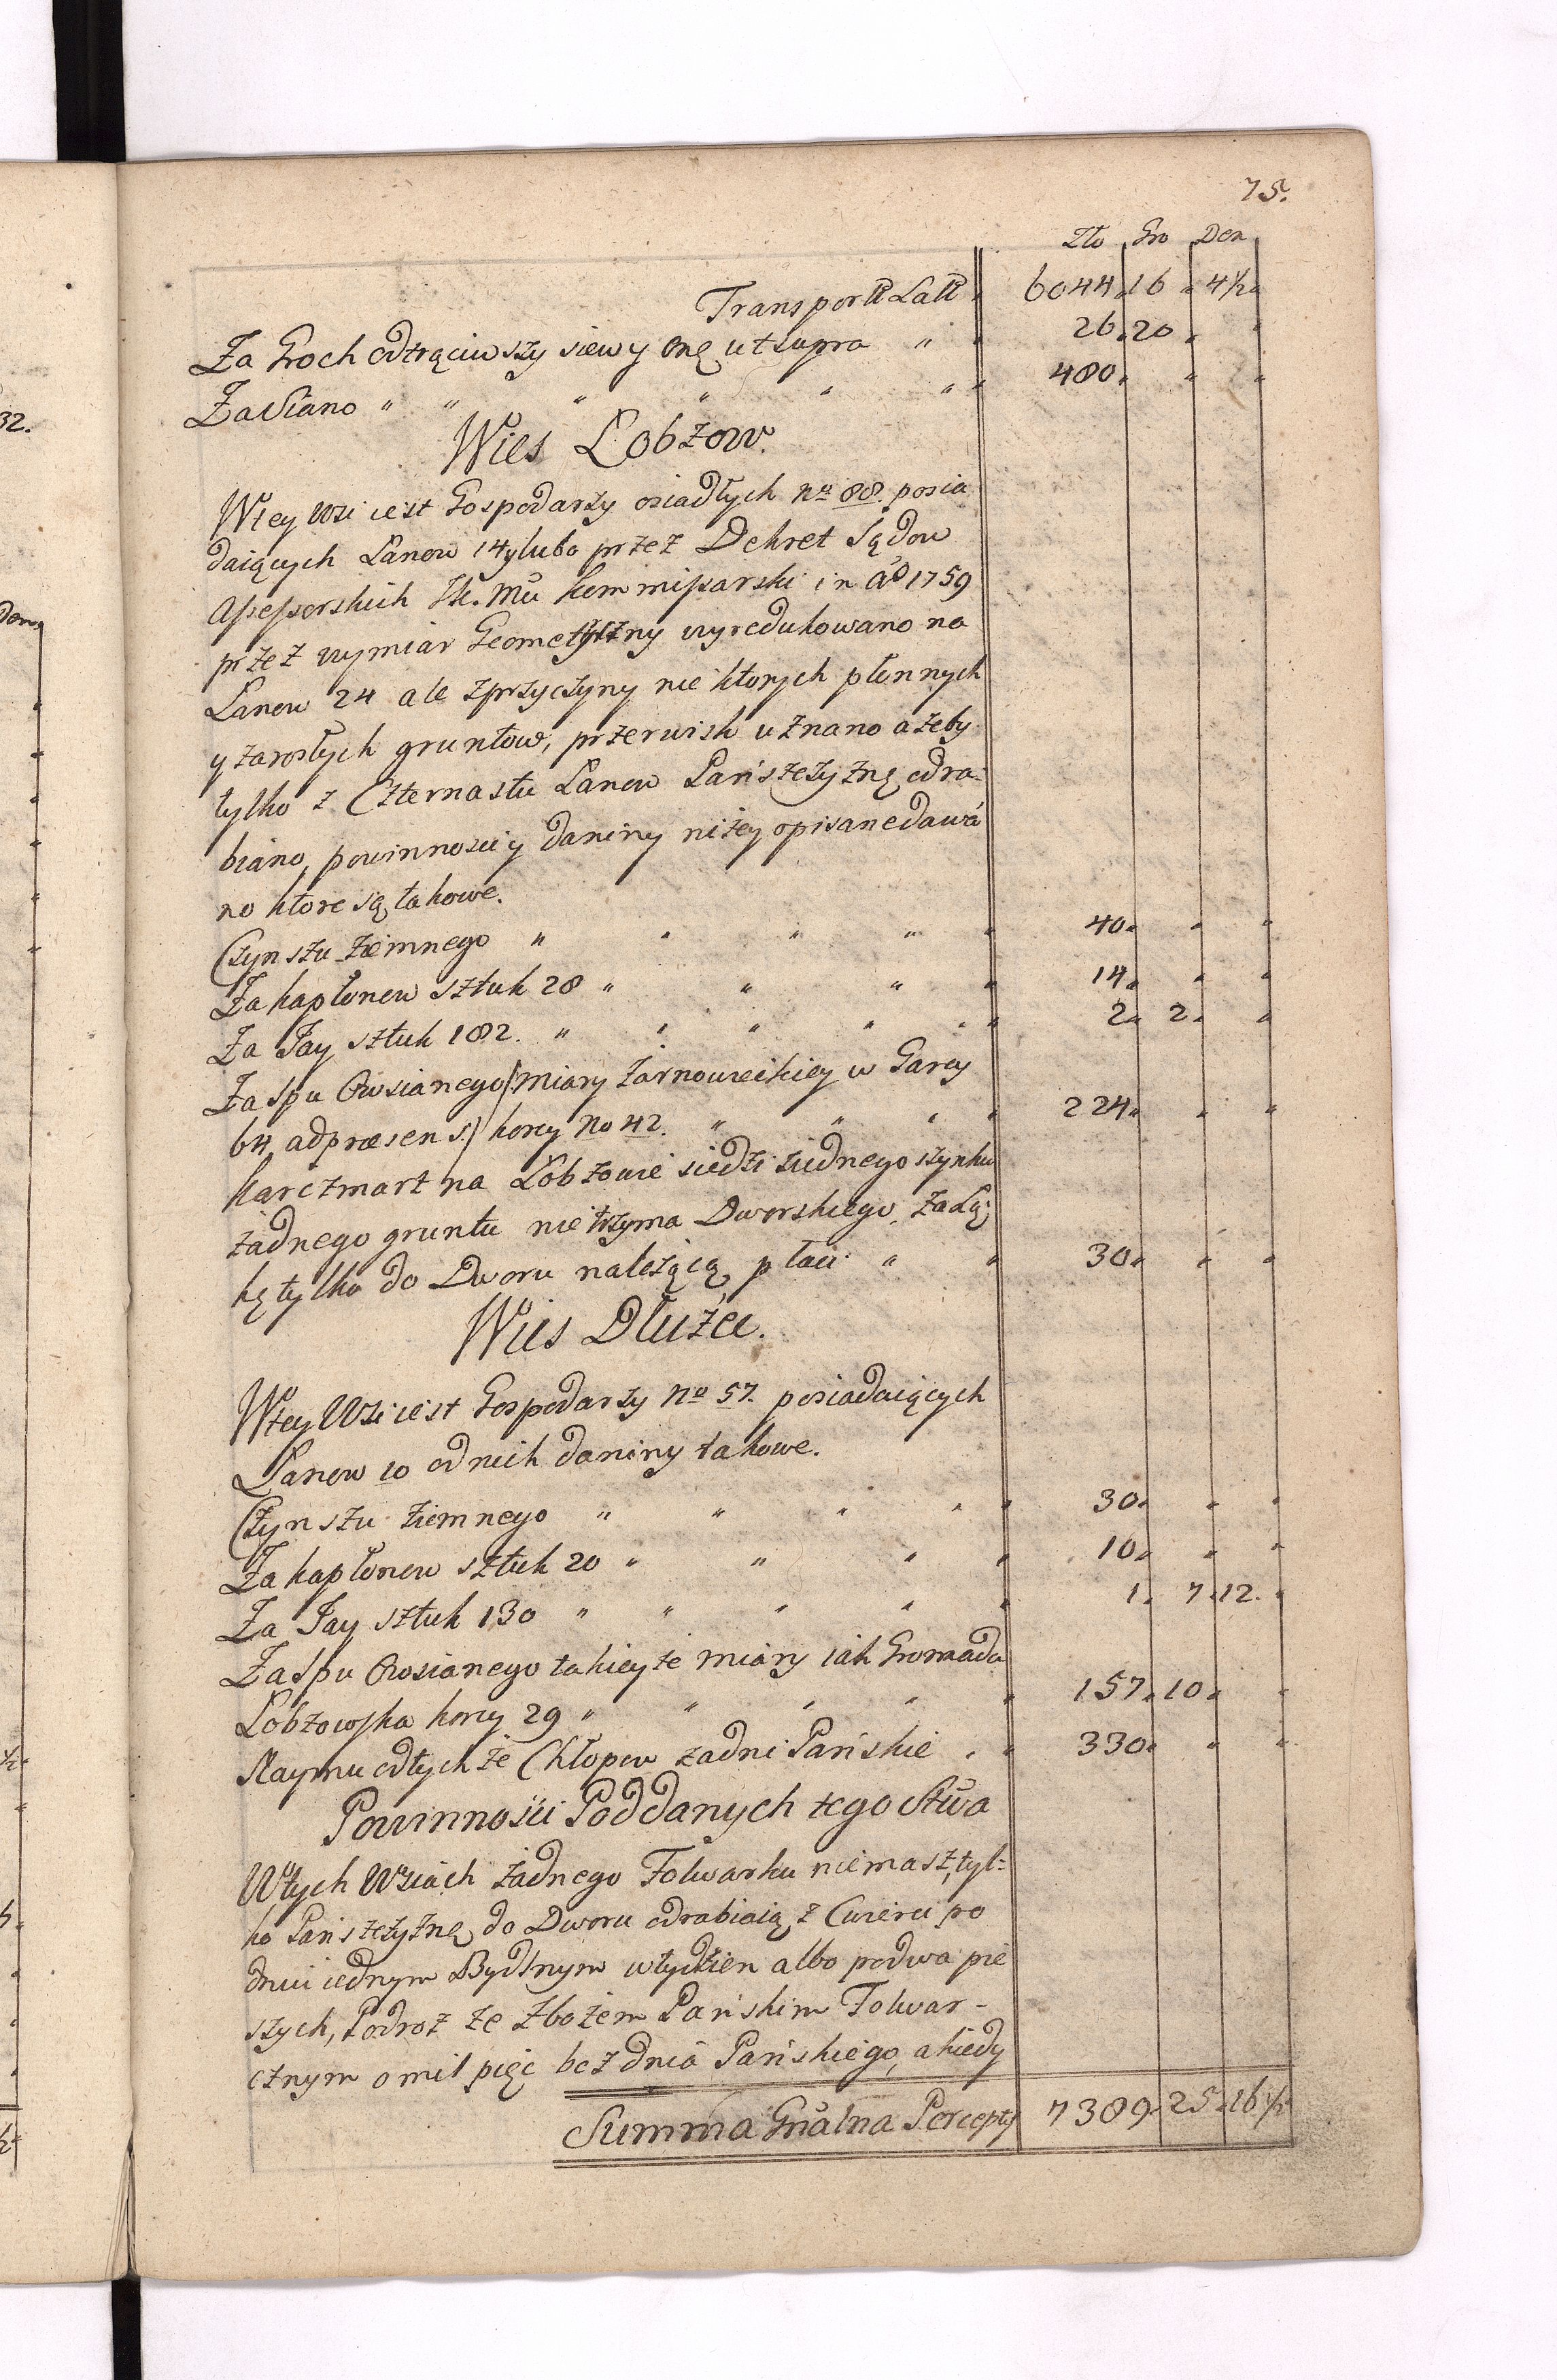 75.
Zło Gro Den
Transport Latt 6044 16 4½
Za Groch odtrąciwszy siewy Onę ut supra 26 20
Za Siano 480
Wies Łobzow.
W tey Wsi iest Gospodarzy osiadłych No 88. posia
daiących Łanow 14 y lubo przez Dekret Sądow
Assessorskich Kommissarski in Ao 1759
przez wymiar Geometryczny wyredukowano na
Łanow 24 ale z przyczyny nie ktorych płonnych
y zarosłych gruntow, przerwisk uznano azeby
tylko z Czternastu Łanow Pańszczyznę odra:
biano, powinnosci y daniny niżey opisane dawa
no ktore są takowe.
Czynszu ziemnego 40
Za kapłonow sztuk 28 14
Za Jay sztuk 182. 2 2
Za Spu Owsianego /: miary Zarnowieckiey w Garcy
64 ad præsens :/ korcy No 42. 224
Karczmarz na Łobzowie siedzi z iednego szynku
żadnego gruntu nie trzyma Dworskiego, za Łą:
kę tylko do Dworu należącą płaci 30
Wies Dłużec.
W tey Wsi iest Gospodarzy No 57. posiadaiących
Łanow 10 od nich daniny takowe.
Czynszu ziemnego 30
Za kapłonow sztuk 20 10
Za Jay sztuk 130 1 7 12.
Za Spu Owsianego takieyże miary iak Gromada
Łobzowska korcy 29 157 10
Naymu od tychże Chłopow za dni Pańskie 330
Powinności Poddanych tego Stwa
W tych Wsiach żadnego Folwarku niemasz, tyl:
ko Pańszczyznę do Dworu odrabiaią z Cwierci po
dniu iednym Bydłnym w tydzien albo po dwa pie
szych, Podroż ze Zbożem Pańskim Folwar-
cznym o mil pięć bez dnia Pańskiego, a kiedy
Summa Gnalna Percepty 7389 25 16½